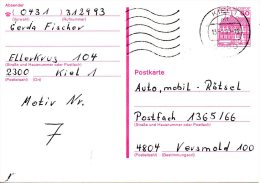 Absender
0431 / 312493
(Vorwahl) (Rufnummer)
Gerda Fischer
Ellerkrug 104
(Straße und Hausnummer oder Postfach)
2300 Kiel 1
(Postleitzahl) (Ort)
Motiv Nr.
7
Postkarte
Auto, mobil - Rätsel
Postfach 1365/66
(Straße und Hausnummer oder Postfach)
4804 Versmold 100
(Postleitzahl) (Bestimmungsort)